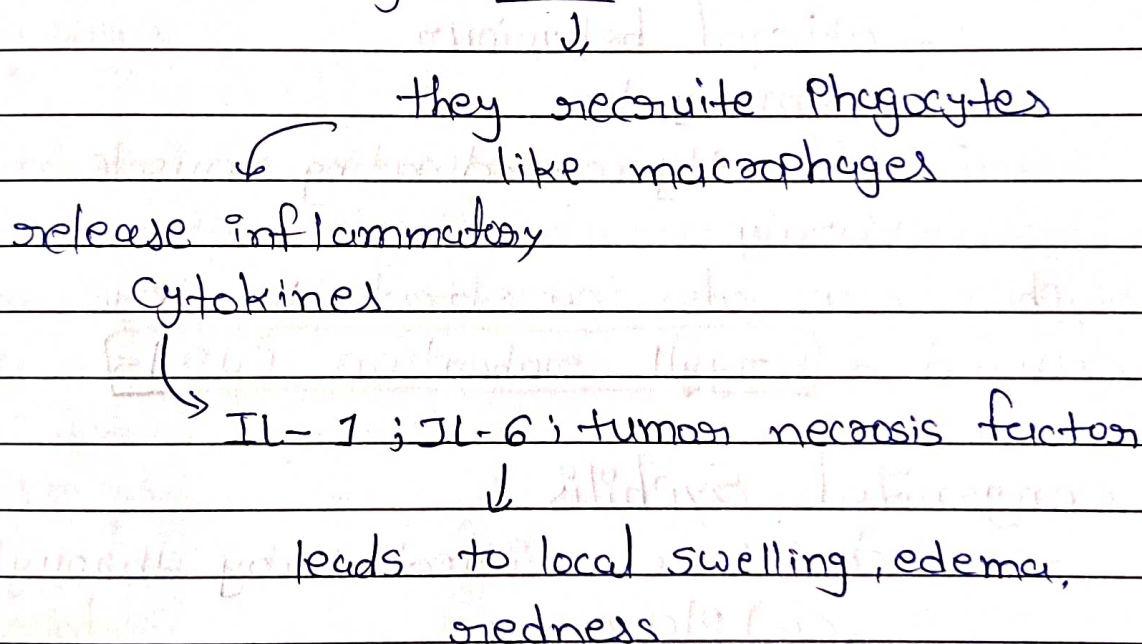 they recruite Phagocytes
like macrophages
release inflammatory
cytokines
IL-1 ; IL-6 ; tumor necrosis factor
leads to local swelling, edema,
redness